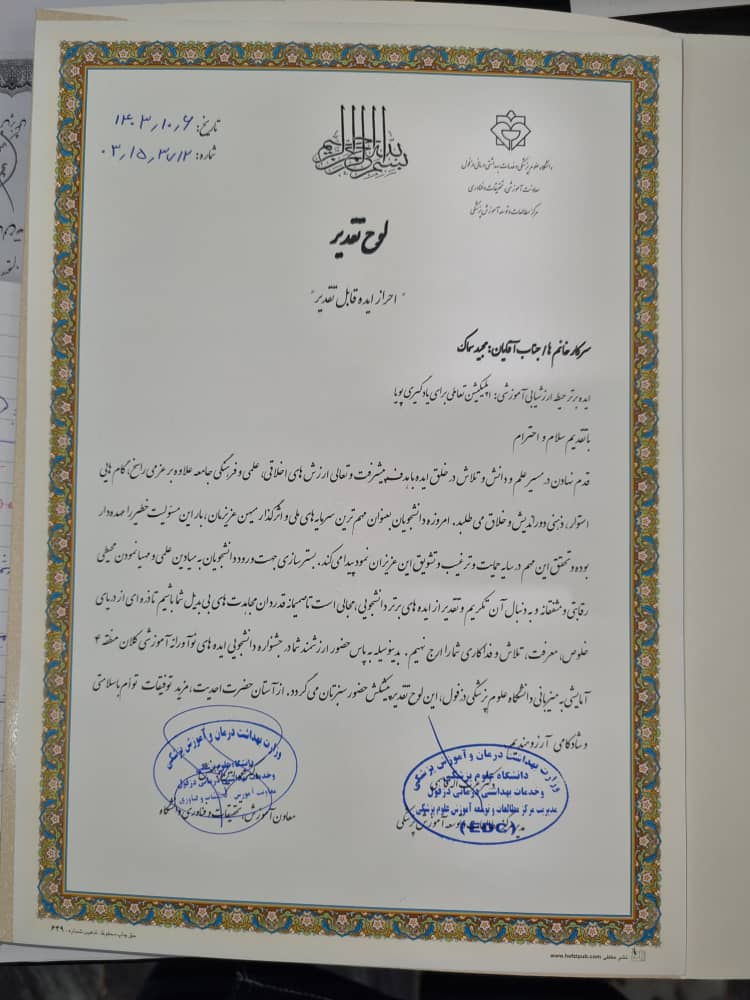 بسم الله الرحمن الرحیم
دانشگاه علوم پزشکی و خدمات بهداشتی درمانی دزفول
معاونت آموزشی، تحقیقات و فناوری
مرکز مطالعات و توسعه آموزش پزشکی
تاریخ: ۱۴۰۳٫۱۰٫۶
شماره:
لوح تقدیر
"احراز ایده قابل تقدیر"
سرکار خانم ها/ جناب آقایان: مجید سماک
ایده برتر حیطه ارزشیابی آموزشی: اپلیکیشن تعاملی برای یادگیری پویا
با تقدیم سلام و احترام
قدم نهادن در مسیر علم و دانش و تلاش در خلق ایده با هدف پیشرفت و تعالی ارزش های اخلاقی، علمی و فرهنگی جامعه علاوه بر عزمی راسخ، گام هایی
استوار، ذهنی دوراندیش و خلاق می طلبد. امروزه دانشجویان بعنوان مهم ترین سرمایه های ملی و اثرگذار میهن عزیزمان، بار این مسئولیت خطیر را عهده دار
بوده و تحقق این مهم در سایه حمایت و ترغیب و تشویق این عزیزان نمود پیدا می کند. بسترسازی جهت ورود دانشجویان به میادین علمی و مهیا نمودن محیطی
رقابتی و مشفقانه و به دنبال آن تکریم و تقدیر از ایده های برتر دانشجویی، مجالی است تا صمیمانه قدردان مجاهدت های بی بدیل شما باشیم تا ذره ای از دریای
خلوص، معرفت، تلاش و فداکاری شما را ارج نهیم. بدینوسیله به پاس حضور ارزشمند شما در جشنواره دانشجویی ایده های نوآورانه آموزشی کلان منطقه ۴
آمایشی به میزبانی دانشگاه علوم پزشکی دزفول، این لوح تقدیر پیشکش حضور سبزتان می گردد. از آستان حضرت احدیت، مزید توفیقات توأم با سلامتی
و شادکامی آرزومندیم
وزارت بهداشت درمان و آموزش پزشکی
دانشگاه علوم پزشکی
و خدمات بهداشتی درمانی دزفول
مدیریت مرکز مطالعات و توسعه آموزش علوم پزشکی
(EDC)
وزارت بهداشت درمان و آموزش پزشکی
دانشگاه علوم پزشکی
و خدمات بهداشتی درمانی دزفول
معاونت آموزش، تحقیقات و فناوری
معاون آموزش، تحقیقات و فناوری دانشگاه
نشر حافظی www.hafezipub.com
حق چاپ محفوظ. تذهیب شماره: ۶۴۹